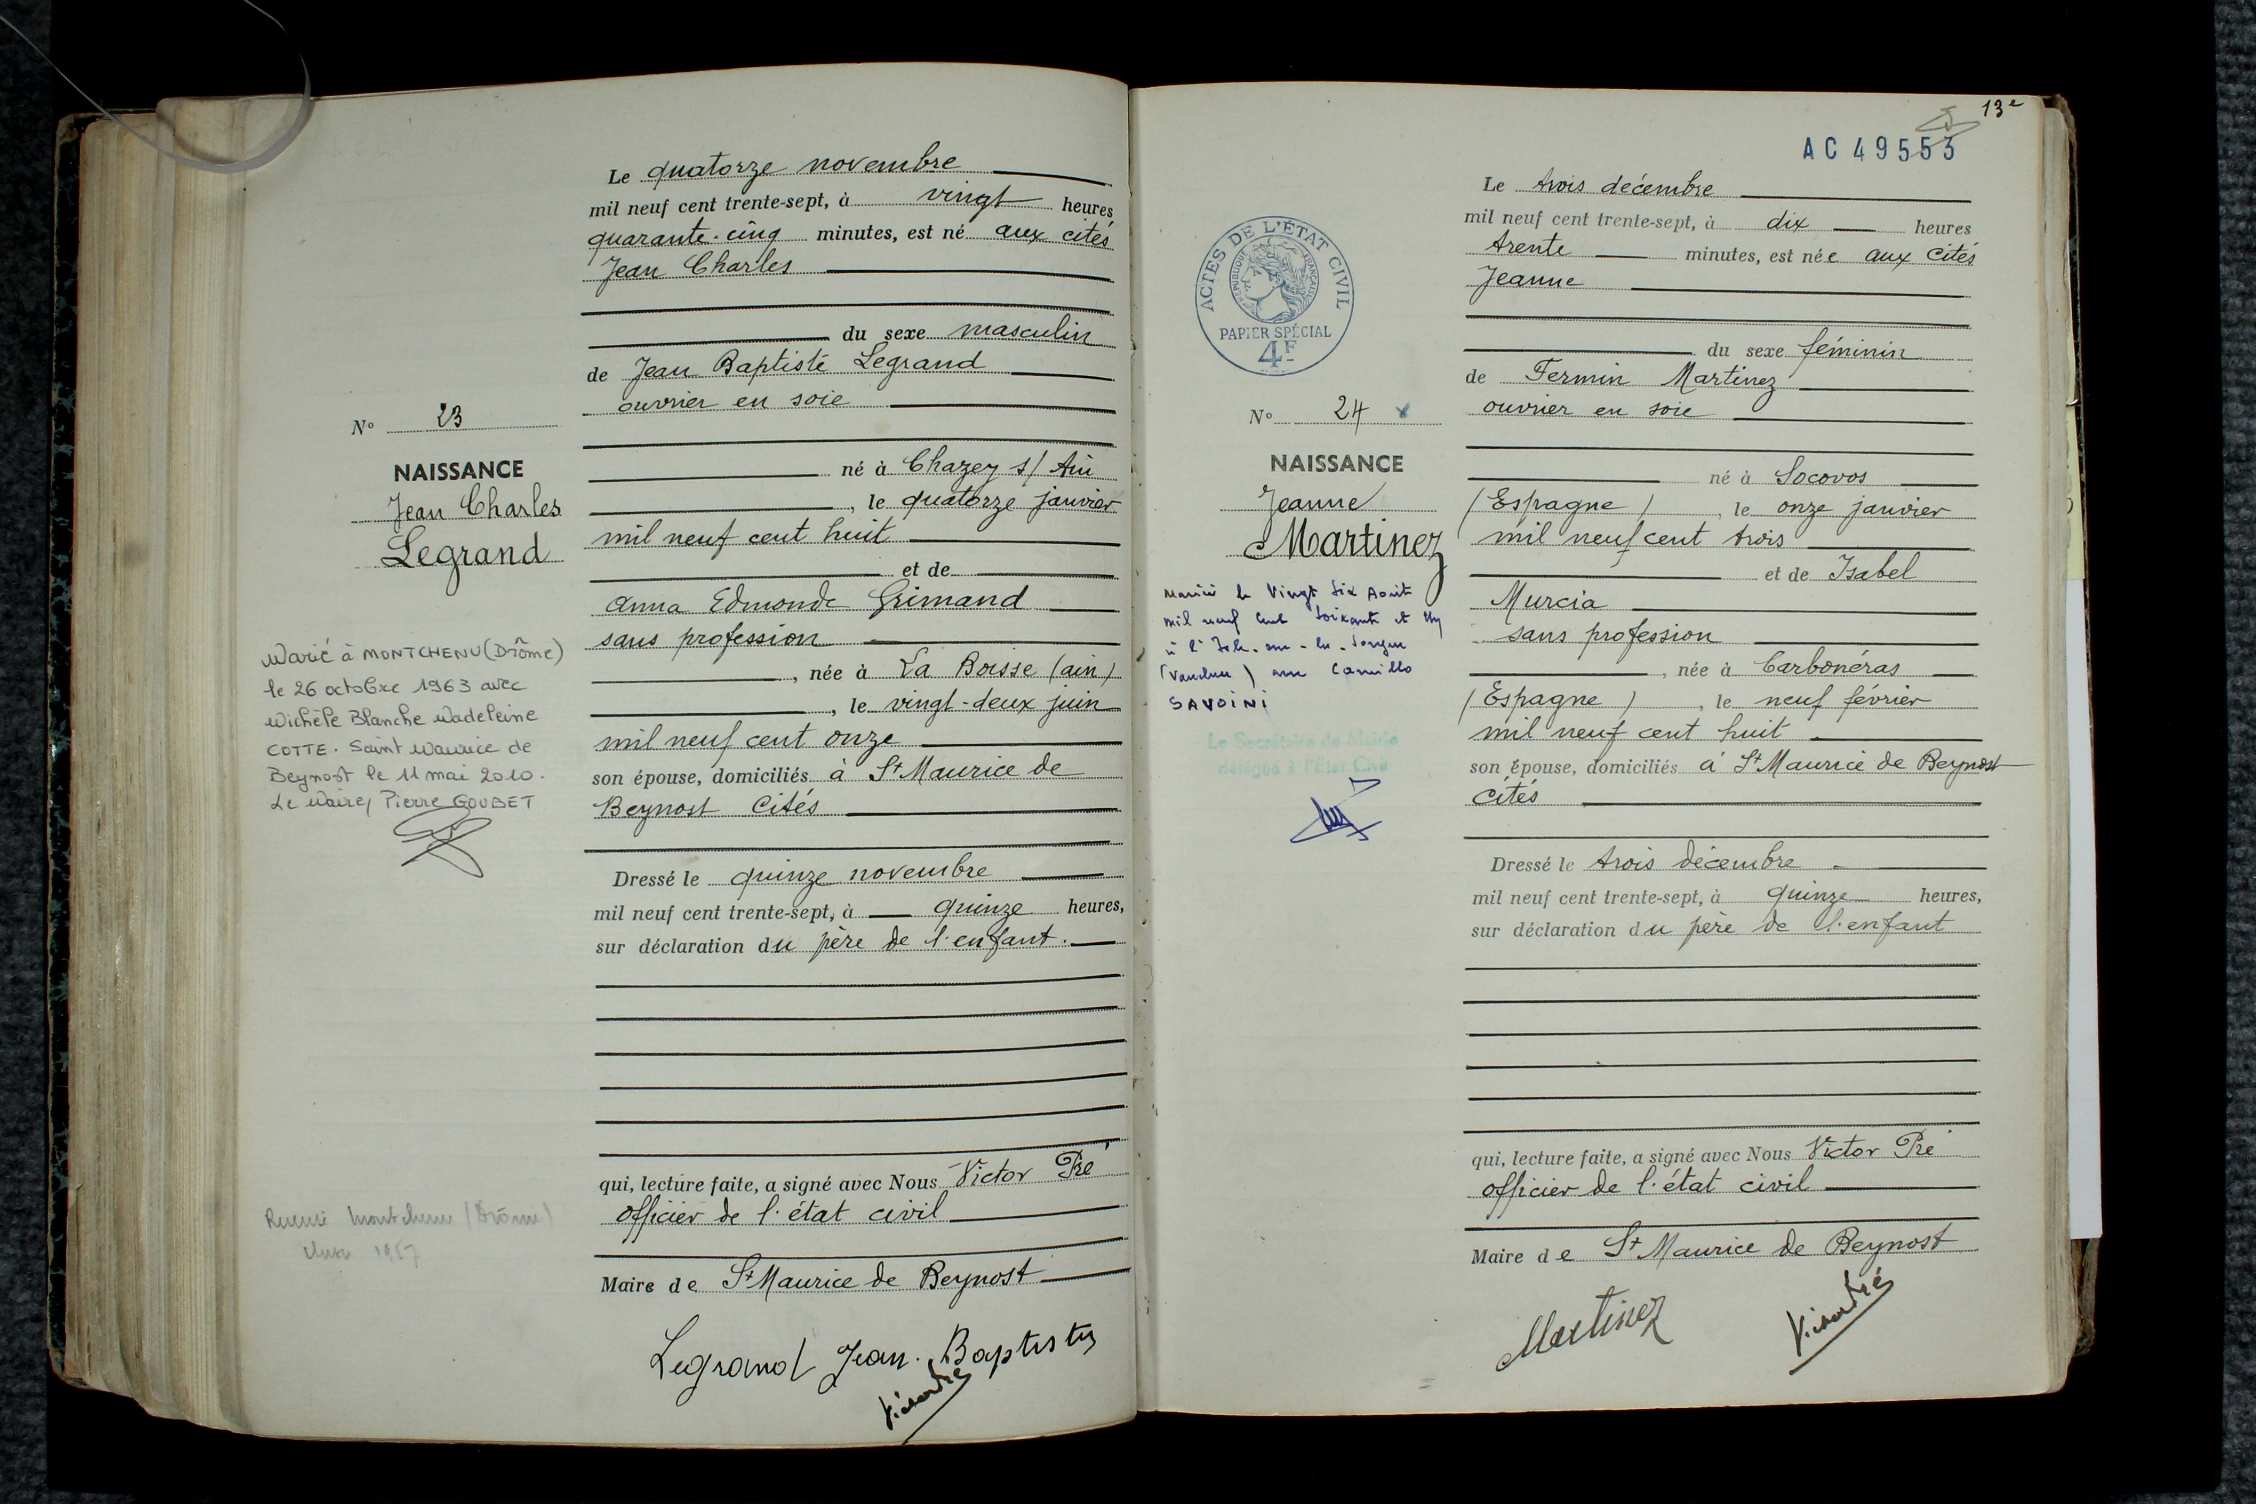 Le quatorze novembre
mil neuf cent trente-sept, à vingt heures
quarante-cinq minutes, est né aux cités
Jean Charles
du sexe masculin
de Jean Baptiste Legrand
ouvrier en soie
né à Chazey s/ Ain
, le quatorze janvier
mil neuf cent huit
et de
Anna Edmonde Grimand
sans profession
, née à La Boisse (ain)
, le vingt-deux juin
mil neuf cent onze
son épouse, domiciliés à St Maurice de
Beynost Cités
Dressé le quinze novembre
mil neuf cent trente-sept, à quinze heures,
sur déclaration du père de l'enfant.
qui, lecture faite, a signé avec Nous Victor Pré
officier de l'état civil
Maire de St Maurice de Beynost
Legrand Jean-Baptiste
Victor Pré
No 23
NAISSANCE
Jean Charles
Legrand
Marié à MONTCHENU (Drôme)
le 26 octobre 1963 avec
Michèle Blanche Madeleine
COTTE. Saint Maurice de
Beynost le 11 mai 2010.
Le Maire, Pierre GOUBET
Montchenu (Drôme)
13e
AC 49553
ACTES DE L'ÉTAT CIVIL
RÉPUBLIQUE FRANÇAISE
PAPIER SPÉCIAL
4F
No 24 x
NAISSANCE
Jeanne
Martinez
le Vingt Six Août
mil neuf cent soixante et
à l'Isle-sur-la-Sorgue
(Vaucluse) avec Camillo
SAVOINI
Le Secrétaire de Mairie
délégué à l'Etat Civil
Le trois décembre
mil neuf cent trente-sept, à dix heures
trente minutes, est née aux Cités
Jeanne
du sexe féminin
de Fermin Martinez
ouvrier en soie
né à Socovos
(Espagne) , le onze janvier
mil neuf cent trois
et de Isabel
Murcia
sans profession
, née à Carbonéras
(Espagne) , le neuf février
mil neuf cent huit
son épouse, domiciliés à St Maurice de Beynost
Cités
Dressé le trois décembre
mil neuf cent trente-sept, à quinze heures,
sur déclaration du père de l'enfant
qui, lecture faite, a signé avec Nous Victor Pré
officier de l'état civil
Maire de St Maurice de Beynost
Martinez
Victor Pré